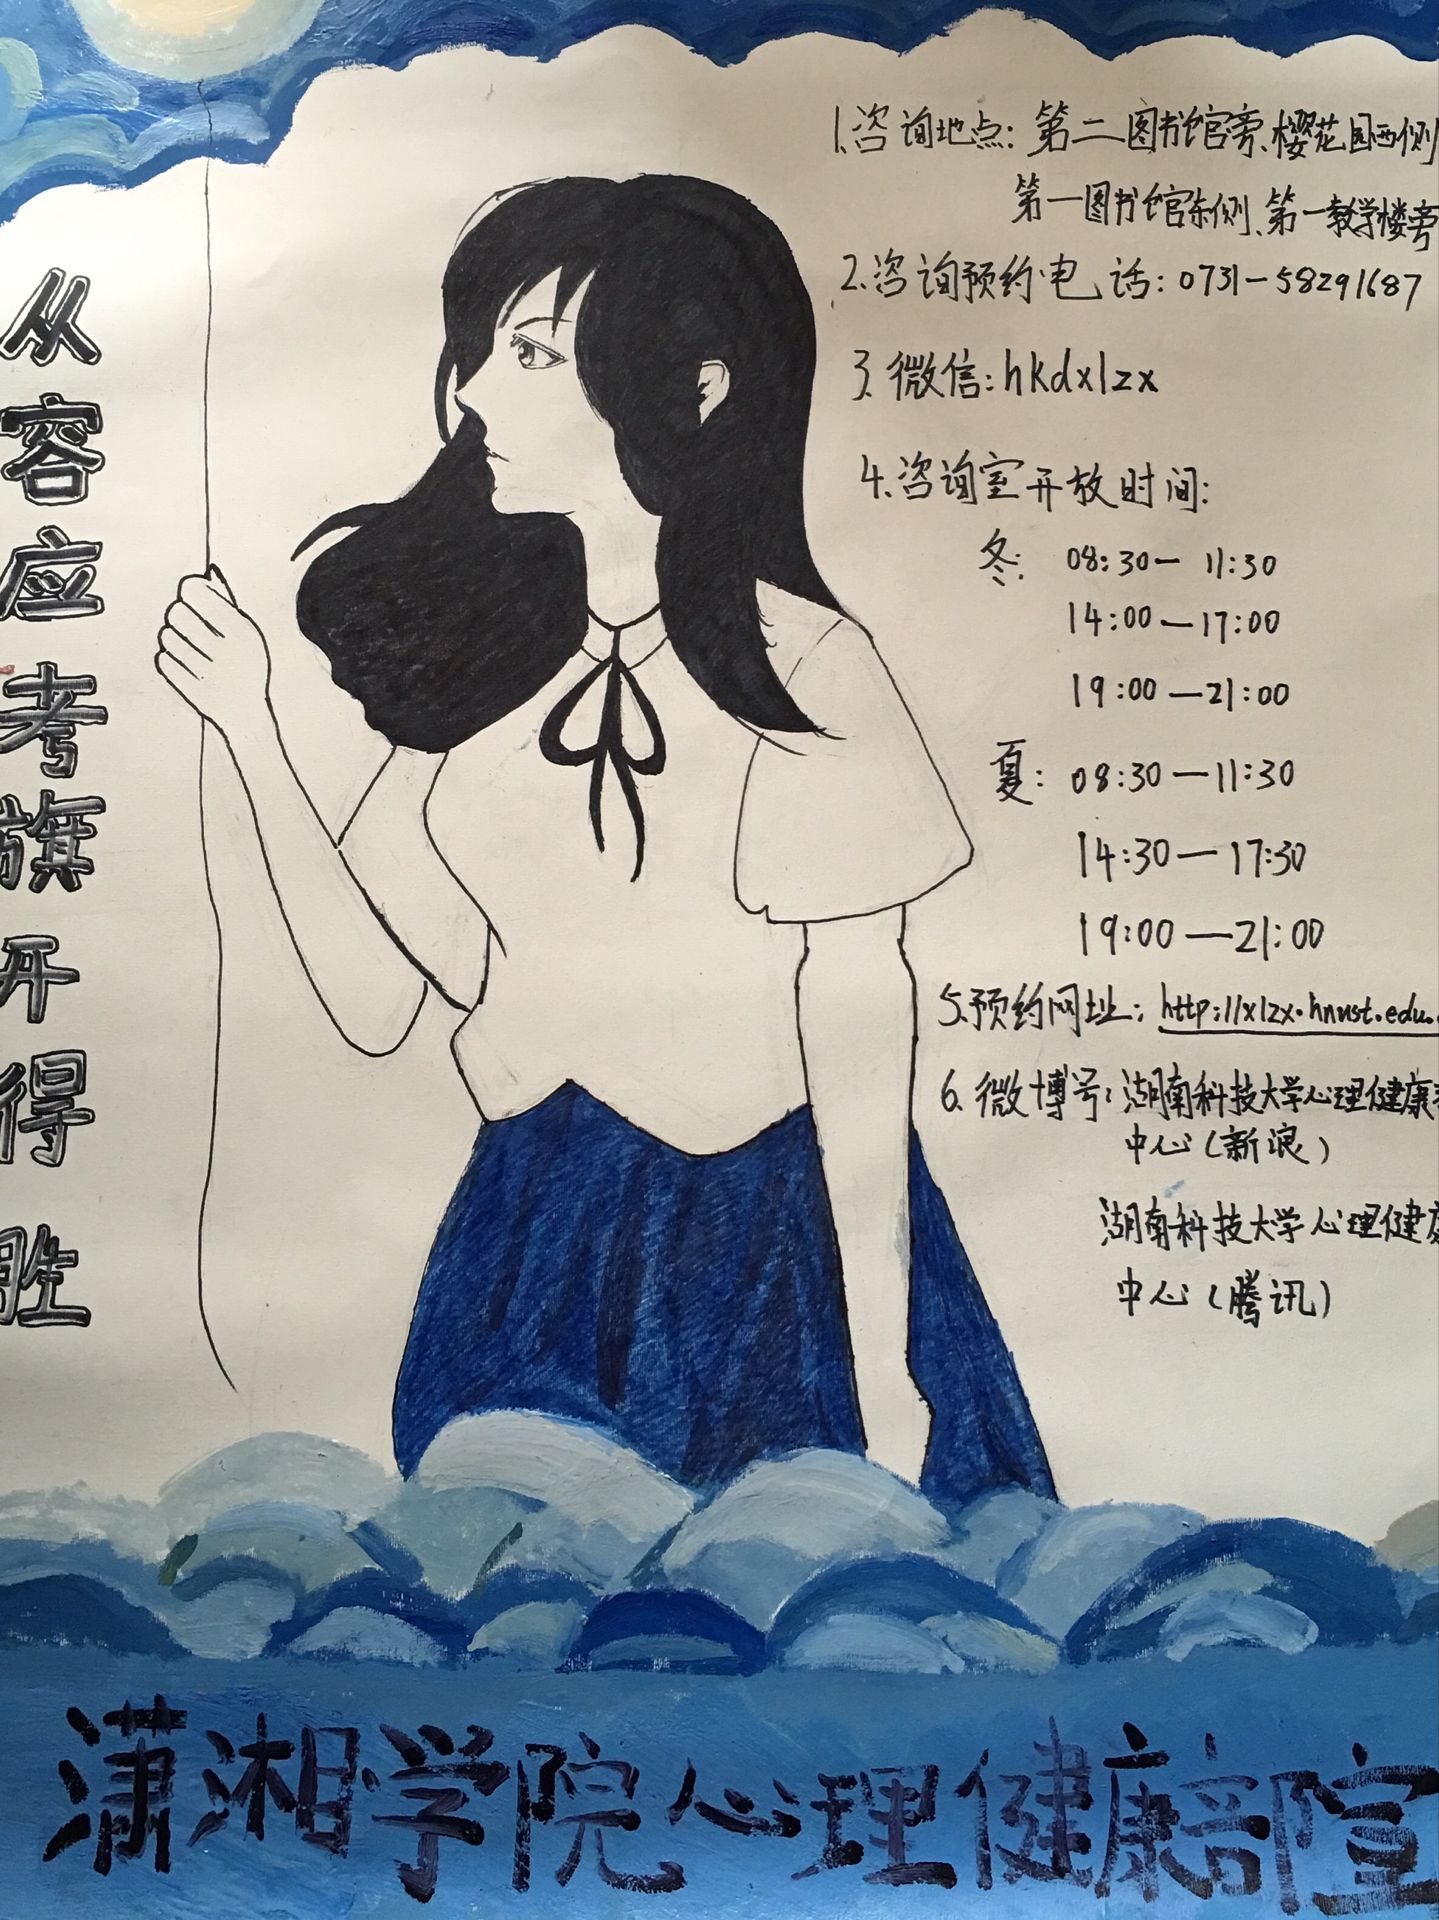 从容应考旗开得胜
1.咨询地点:第二图书馆旁、樱花园西侧
第一图书馆东侧、第一教学楼旁
2.咨询预约电话:0731-58291687
3.微信:hkdxlzx
4.咨询室开放时间:
冬: 08:30— 11:30
14:00—17:00
19:00—21:00
夏: 08:30—11:30
14:30—17:30
19:00—21:00
5.预约网址: http://xlzx.hnust.edu.
6.微博号:湖南科技大学心理健康
中心(新浪)
湖南科技大学心理健康
中心(腾讯)
潇湘学院心理健康部宣